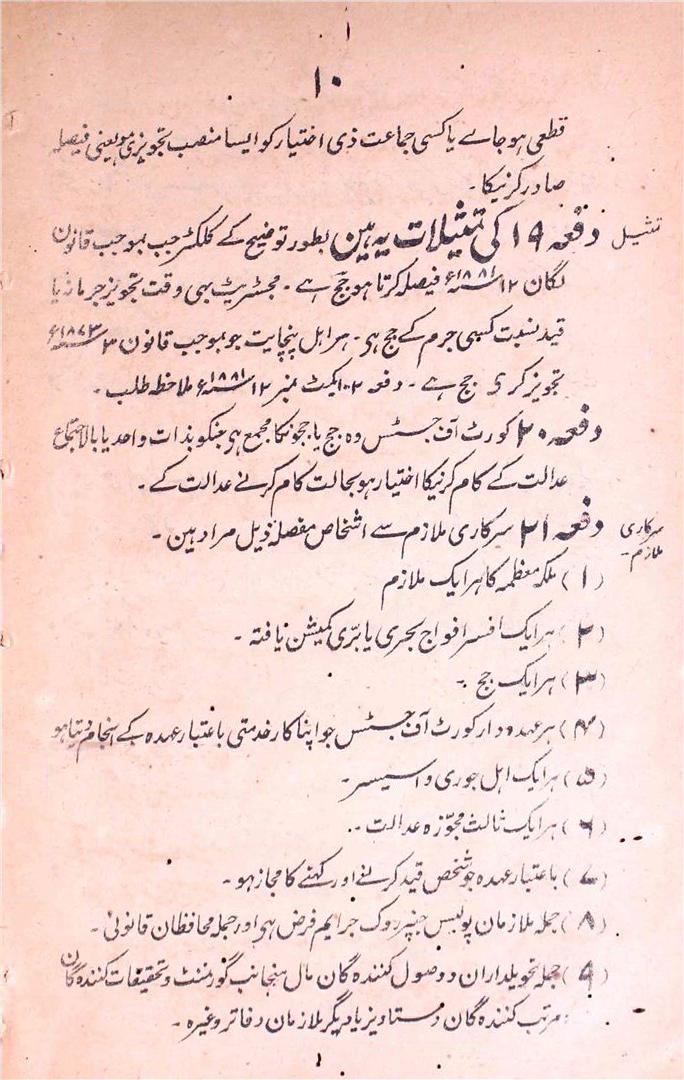 ۱۰
قطعی ہو جاے یا کسی جماعت ذی اختیار کو ایسا منصب تجویزی ہو یعنی فیصلہ
صادر کرنیکا۔
تمثیل
دفعہ ۱۹ کی تمثیلات یہ ہین بطور توضیح کے کلکٹر جب بموجب قانون
لگان ۱۲ سنہ ۱۸۸۱ء فیصلہ کرتا ہو جج ہے۔ مجسٹریٹ بھی وقت تجویز جرمانہ یا
قید نسبت کسی جرم کے جج ہی۔ ہر اہل پنچایت جو بموجب قانون ۳ سنہ ۱۸۷۳ء
تجویز کری جج ہے۔ دفعہ ۲۔ ایکٹ نمبر ۱۲ سنہ ۱۸۸۱ء ملاحظہ طلب۔
دفعہ ۲۰ کورٹ آف جسٹس وہ جج یا ججونکا مجمع ہی جنکو بذات واحد یا بالاجتماع
عدالت کے کام کرنیکا اختیار ہو بحالت کام کرنے عدالت کے۔
سرکاری ملازم۔
دفعہ ۲۱ سرکاری ملازم سے اشخاص مفصلہ ذیل مراد ہین۔
(۱) ملکہ معظمہ کا ہر ایک ملازم
(۲) ہر ایک افسر افواج بحری یا برّی کمیشن یافتہ۔
(۳) ہر ایک جج۔
(۴) ہر عہدہ دار کورٹ آف جسٹس جو اپنا کار خدمتی باعتبار عہدہ کے انجام دیتا ہو
(۵) ہر ایک اہل جوری و اسیسر۔
(۶) ہر ایک ثالث مجوّزہ عدالت۔
(۷) باعتبار عہدہ جو شخص قید کرنے اور رکہنے کا مجاز ہو۔
(۸) جملہ ملازمان پولیس جنپر روک جرایم فرض ہی اور جملہ محافظان قانونی۔
(۹) جملہ تحویلداران و وصول کنندہ گان مال منجانب گورنمنٹ و تحقیقات کنندہ گان
مرتب کنندہ گان دستاویز یا دیگر ملازمان دفاتر وغیرہ۔